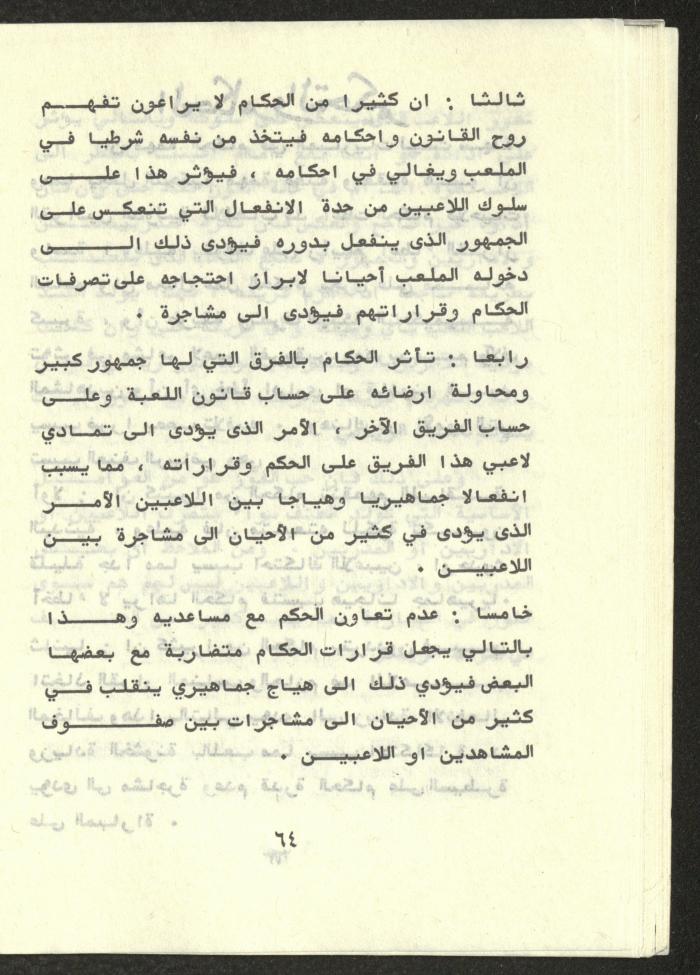 ثالثا : ان كثيرا من الحكام لا يراعون تفهم
روح القانون واحكامه فيتخذ من نفسه شرطيا في
الملعب ويغالي في احكامه ، فيؤثر هذا على
سلوك اللاعبين من حدة الانفعال التي تنعكس على
الجمهور الذى ينفعل بدوره فيؤدى ذلك الى
دخوله الملعب أحيانا لابراز احتجاجه على تصرفات
الحكام وقراراتهم فيؤدى الى مشاجرة .
رابعا : تأثر الحكام بالفرق التي لها جمهور كبير
ومحاولة ارضائه على حساب قانون اللعبة وعلى
حساب الفريق الآخر ، الأمر الذى يؤدى الى تمادي
لاعبي هذا الفريق على الحكم وقراراته ، مما يسبب
انفعالا جماهيريا وهياجا بين اللاعبين الأمر
الذى يؤدى في كثير من الأحيان الى مشاجرة بين
اللاعبين .
خامسا : عدم تعاون الحكم مع مساعديه وهذا
بالتالي يجعل قرارات الحكام متضاربة مع بعضها
البعض فيؤدي ذلك الى هياج جماهيري ينقلب في
كثير من الأحيان الى مشاجرات بين صفوف
المشاهدين او اللاعبين .
٦٤